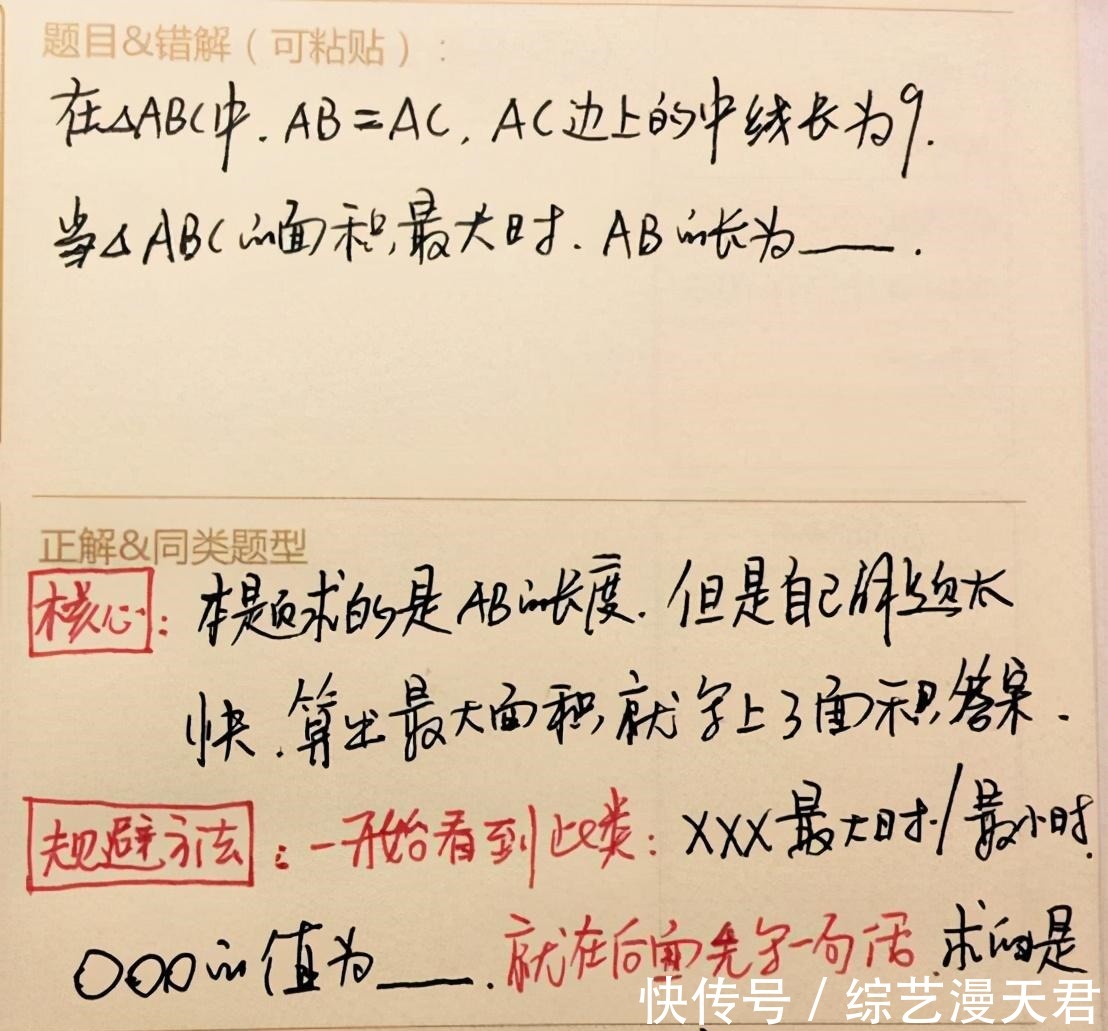 题目&错解（可粘贴）：
在△ABC中.AB=AC,AC边上的中线长为9.
当△ABC的面积最大时.AB的长为___.
正解&同类题型
核心：本题求的是AB的长度.但是自己解题太
快.算出最大面积,就写上了面积答案.
规避方法：一开始看到此类：XXX最大时/最小时.
OOO的值为___.就在后面先写一句话.求的是
快传号/综艺漫天君